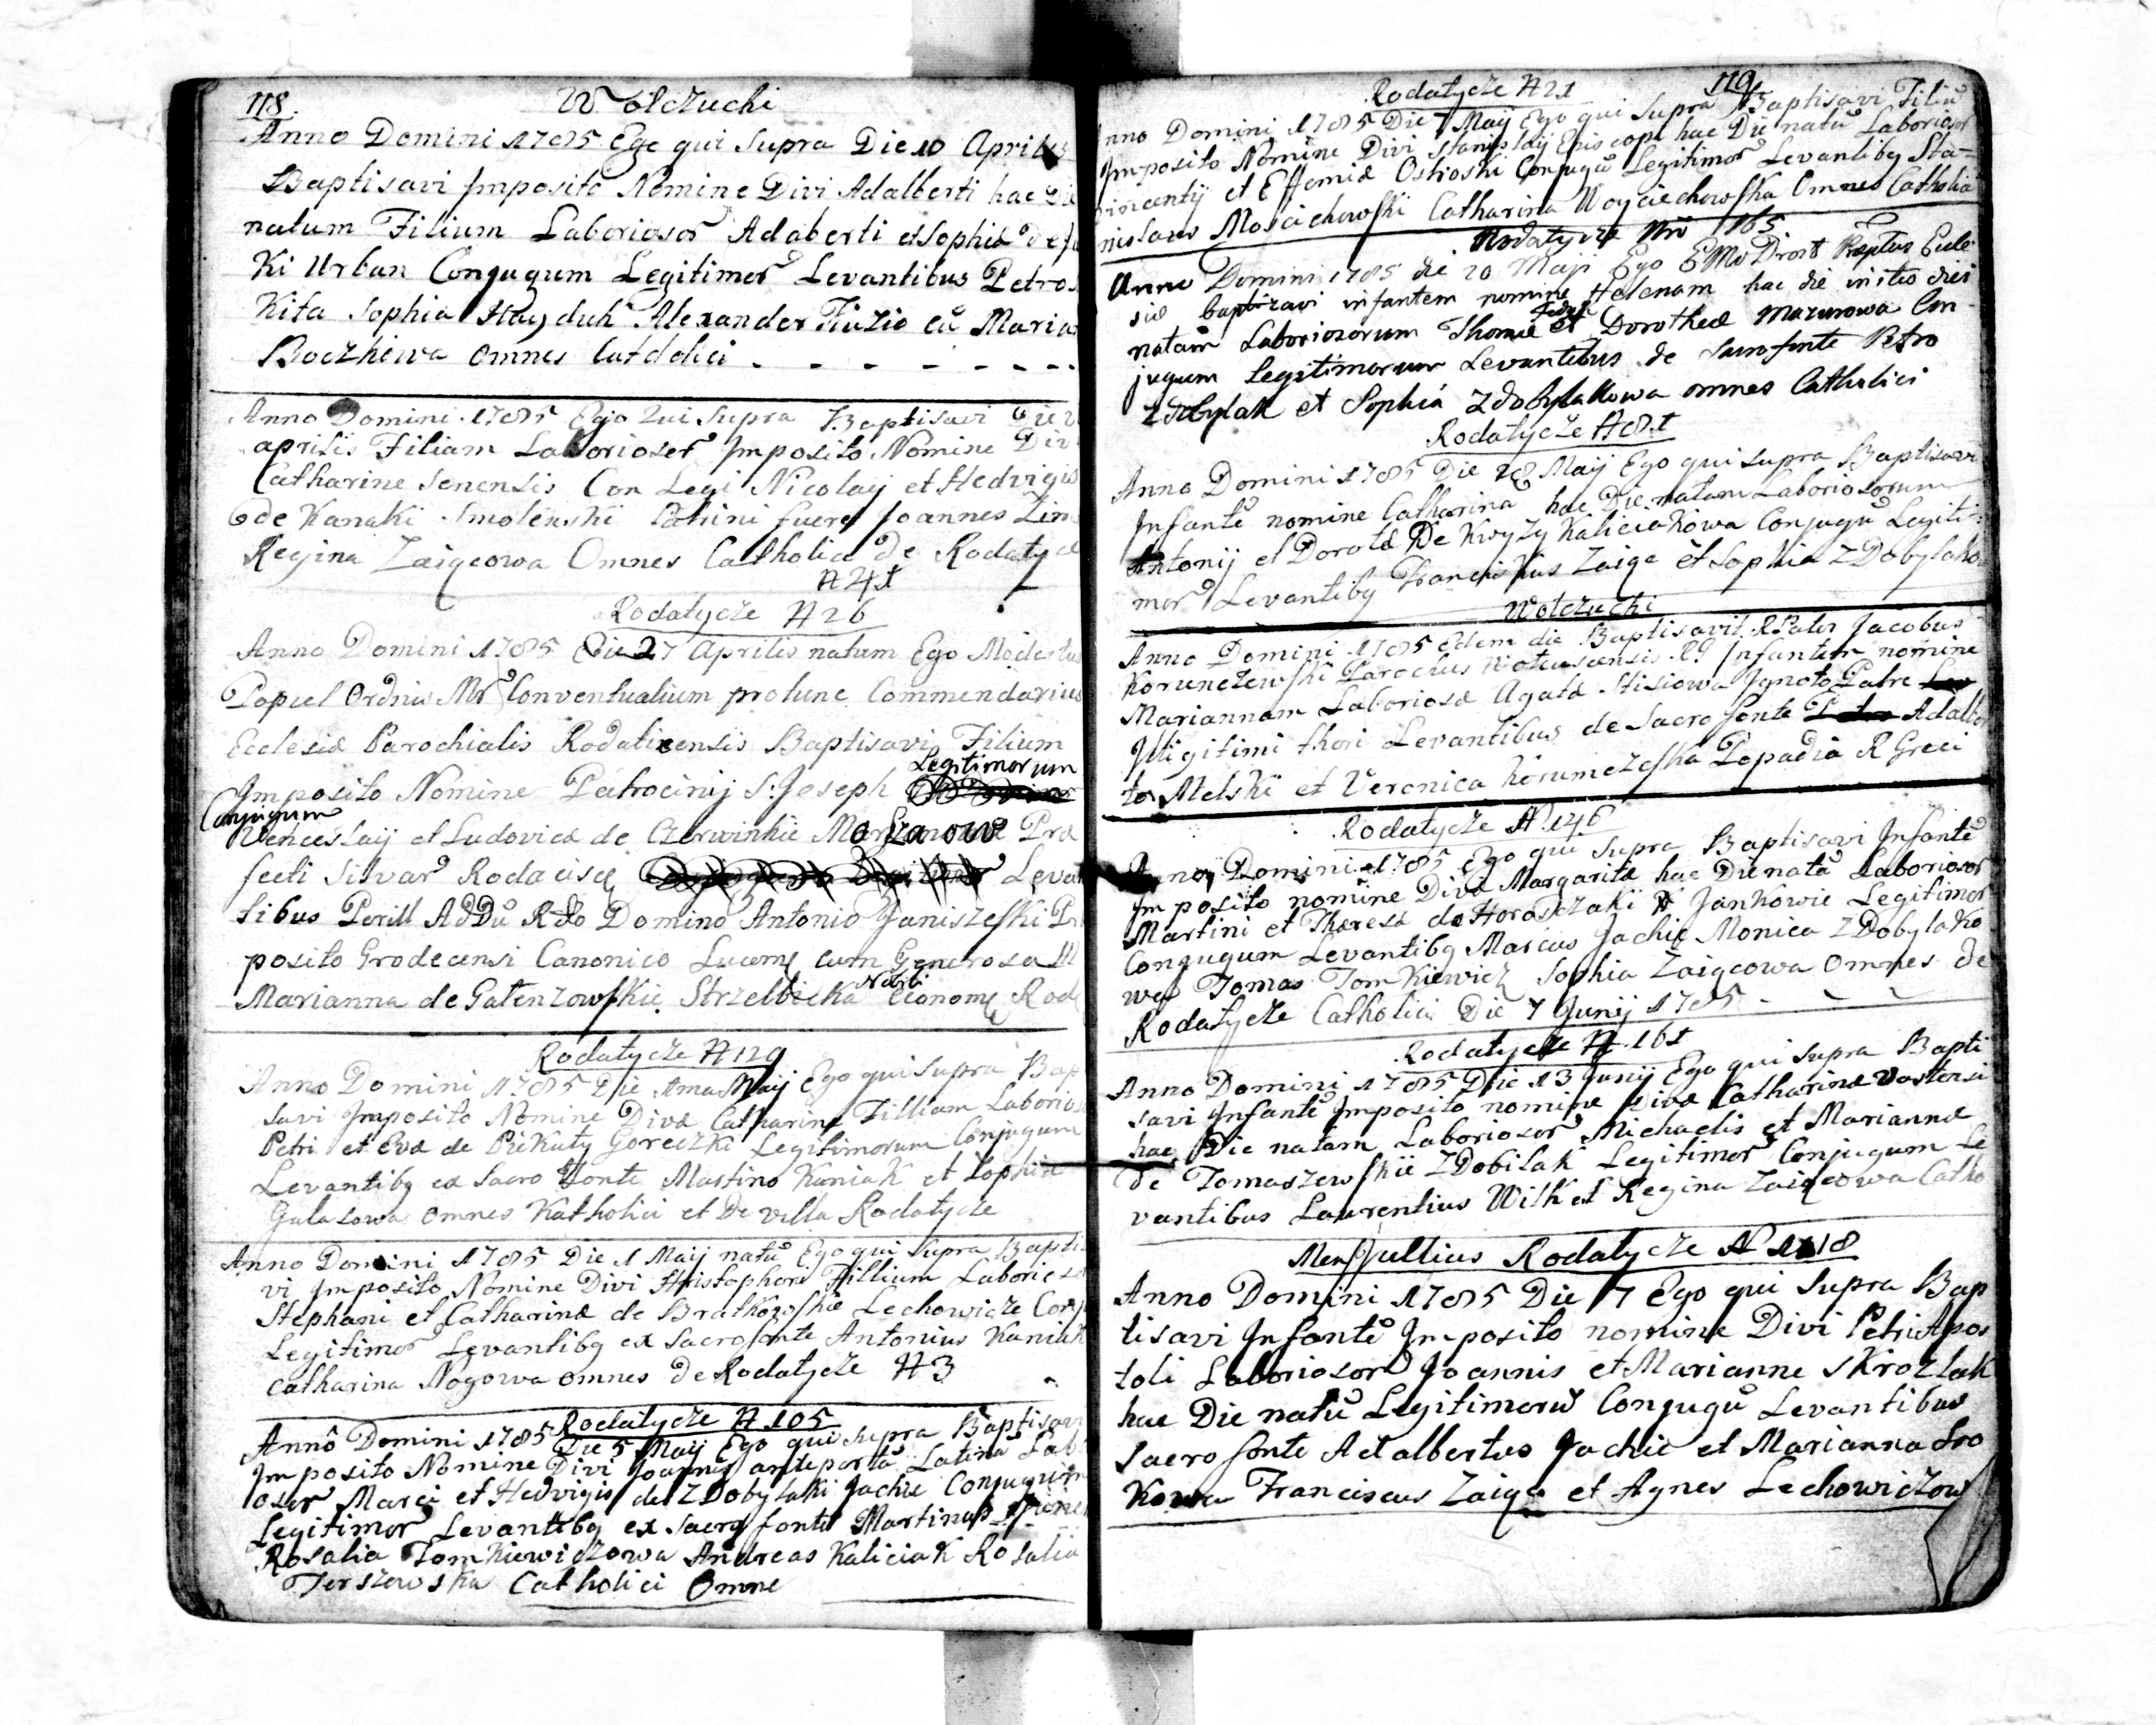 118. Wolczuchi
Anno Domini 1785 Ego qui Supra Die 10 Aprilis
Baptisavi Imposito Nomine Divi Adalberti hac Die
natum Filium Laboriosor Adaberti et Sophiæ
Ki Urban Conjugum Legitimor Levantibus Petro
Kita Sophia Hayduk Alexander cu Maria
Boczniewa Omnes Catolici
Anno Domini 1785 Ego Qui Supra Baptisavi Die
aprilis Filiam Laborioser Imposito Nomine Div
Catharine Senensis Con Legi Nicolaij et Hedvigis
de Kanaki Smolenski Patrini fuere Joannes
Regina Zaigcowa Omnes Catholici de Rodatyc
N 41
Rodatycze N 26
Anno Domini 1785 Die 27 Aprilis natum Ego Modestus
Popiel Ordnis Mr Conventualium protunc Commendarius
Ecclesiæ Parochialis Rodaticensis Baptisavi Filium
Imposito Nomine Patrocinij S. Joseph Legitimorum
Conjugum
Venceslaij et Ludovicæ de Czerwinkie Præ
fecti Silvar Rodacisce Levan
tibus Perill AdDu Rdo Domino Antonio Janiszefski
posito Grodecensi Canonico cum Generosa
Marianna de Galenzowskie Strzelbicka
Rodatycze N 129
Anno Domini 1785 Die Ima Maij Ego qui Supra Bap
savi Imposito Nomine Divæ Catharine Filliam Laborios
Petri et Evæ de Piekuty Goreczki Legitimorum Conjugum
Levantibq ex Sacro fonte Martino Kuniak et Sophia
Galasowa omnes Katholici et De villa Rodatycze
Anno Domini 1785 Die 1 Maij natu Ego qui Supra Bapti
vi Imposito Nomine Divi Hristophori Fillium Laborioso
Stephani et Catharinæ de Bratkowskie Lechowicze Conj
Legitimor Levantibq ex Sacro fonte Antonius Kuniak
Catharina Nogowa omnes de Rodatycze N 3
Rodatycze N 105
Anno Domini 1785 Die 5 Maij Ego qui Supra Baptisavi
Imposito Nomine Divi Joannis ante porta Latina Lab
oser Marci et Hedvigis de ZDobylaki Jachie Conjugum
Legitimor Levantibq ex Sacro fonte Martinus
Rosalia Tomkiewiczowa Andreas Kaliciak Rosalia
Jerszewska Catholici Omne
Rodatycze N 21 119
nno Domini 1785 Die 7 Maij Ego qui Supra Baptisavi Filiu
Imposito Nomine Divi Stanislaij Episcopi hac Die natu Laborioser
vincentij et Effemiæ Ostroski Conjugu Legitimor Levantibq Sta=
nislaus Moscichowski Catharina Woyciechowska Omnes Catholici
Rodatycze Nro 165
Anno Domini 1785 die 20 Maji Ego Drost Præptus Eccle
siæ baptizavi infantem nomine Helenam hac die istius diei
natam Laboriosorum Thomæ et Dorotheæ Mazurowa Con
jugum Legitimorum Levantibus de Sacro fonte Petro
Zdobylak et Sophia Zdobylakowa omnes Catholici
Rodatycze N 81
Anno Domini 1785 Die 28 Maij Ego qui supra Baptisavi
Infantē nomine Catharina hac Die natam Laboriosorum
Antonij et Dorotæ De Kwyzy Kaliciakowa Conjugu Legiti=
mor Levantibq Franciskus Zaiga et Sophia ZDobylako
Wolczuchi
Anno Domini 1785 Edem die Baptisavit R Pater Jacobus
Korunczewski Parochus RG Infantem nomine
Mariannam Laboriosæ Agatæ Stisiowa Ignoto Patre
Illigitimi thori Levantibus de Sacro fonte Adalber
to Melski et Veronica Korumczefska Popadia R Greci
Rodatycze N 146
Anno Domini 1785 Ego qui Supra Baptisavi Infantē
Imposito nomine Divæ Margaritæ hac Die natā Laborioser
Martini et Theresæ de Horoszczaki Jankowie Legitimor
Conjugum Levantibq Marcus Jachie Monica ZDobylako
wa Tomas Tomkiewicz Sophia Zaigcowa Omnes de
Rodatycze Catholici Die 7 Junij 1785
Rodatycze N 161
Anno Domini 1785 Die 13 Junij Ego qui Supra Bapti
savi Infantē Imposito nomine Divæ Catharinæ
hac Die natam Laborioser Michaelis et Mariannæ
de Tomaszewskie ZDobilak Legitimor Conjugum Le
vantibus Laurentius Wilk et Regina Zaigcowa Catho
Mens Jullius Rodatycze N 118
Anno Domini 1785 Die 7 Ego qui Supra Bap
tisavi Infantē Imposito nomine Divi Petri Apos
toli Laboriosor Joannis et Marianne Skrozlak
hac Die natu Legitimoru Conjugu Levantibus
Sacro fonte Adalbertus Jachie et Marianna Sro
Kowa Franciscus Zaiga et Agnes Lechowiczow